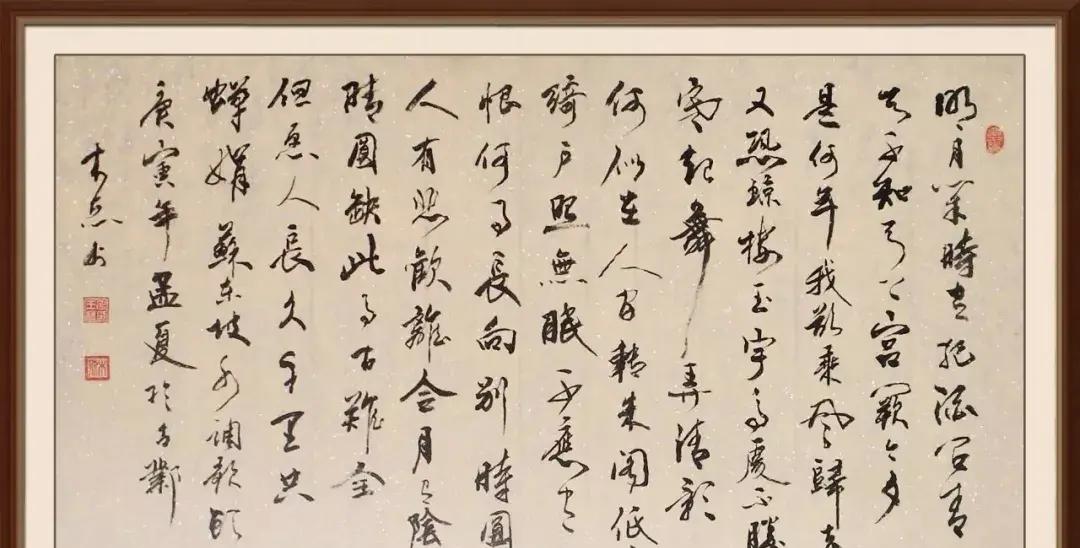 明月幾時有把酒問青
天不知天上宮闕今夕
是何年我欲乘風歸去
又恐瓊樓玉宇高處不勝
寒起舞弄清影
何似在人間轉朱閣低
綺戶照無眠不應有
恨何事長向別時圓
人有悲歡離合月有陰
晴圓缺此事古難全
但願人長久千里共
嬋娟蘇東坡水調歌頭
庚寅年孟夏於